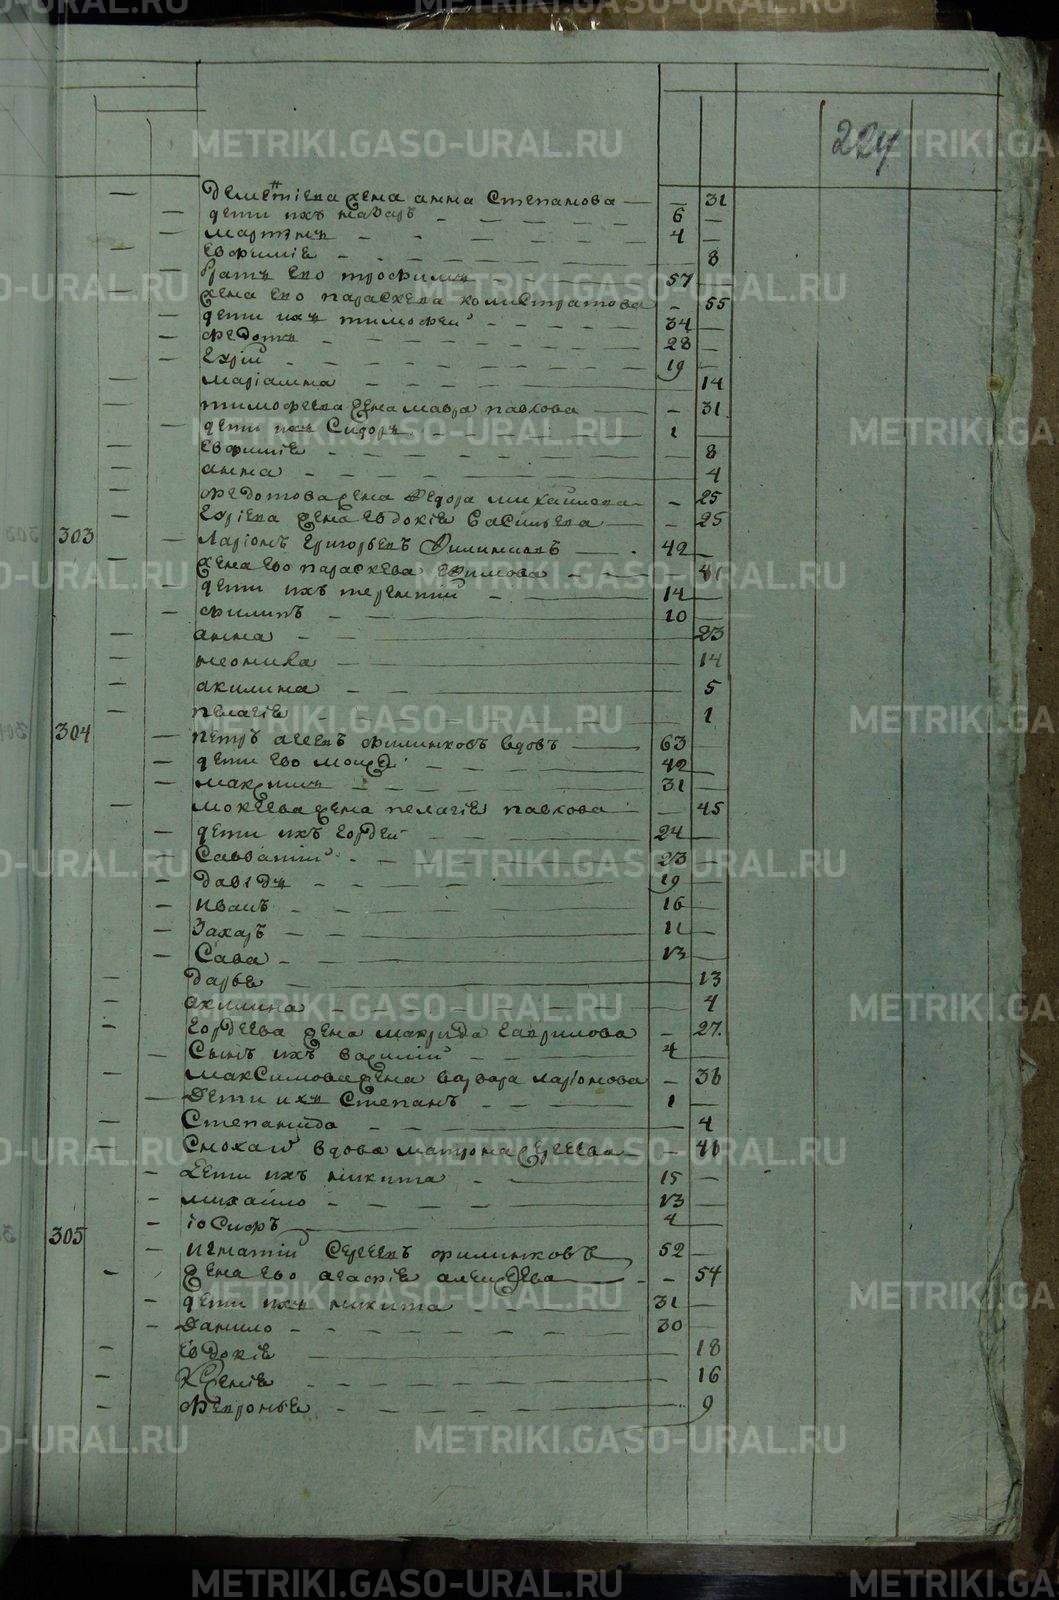 224
Дементиева жена анна Степанова — — 31
дети ихъ назаръ — 6 —
мартинъ — 4 —
Евфимiѣ — — 8
братъ ево трофимъ — 57 —
жена ево параскева калистратова — 55
дети ихъ тимофеи — 34 —
Федотъ — 28 —
Егӱй — 19
марiамна — 14
тимофеева жена мавра павлова — 31
дети ихъ Сидоръ — 1
Евфимiѣ — 8
анна — 4
федотова жена Федора михаилова — 25
Егорiева жена Евдокiѣ Васильева — 25
303 Ларiонъ Григорьевъ Филинковъ — 42 —
жена ево параскева Ефимова — 41
дети ихъ терентий — 14 —
филипъ — 10
анна — 23
неонила — 14
акилина — 5
пелагiѣ — 1
304 петръ агеевъ филинковъ вдовъ — 63
дети ево мокей — 42
максимъ — 31 —
мокеева жена пелагiѣ павлова — 45
дети ихъ гордеи — 24
Савватий — 23 —
давидъ — 19 —
иванъ — 16 —
Захаръ — 11 —
Сава — 13 —
дарьѣ — 13
акилина — 4
гордеева жена макрида гаврилова — 27
Сынъ ихъ василий — 4 —
максимова жена варвара ларiонова — 36
Дети ихъ Степанъ — 1 —
Степанида — 4
Снохай вдова матрона Сергеева — 46
Дети ихъ никита — 15 —
михаило — 13 —
iосифъ — 4
305 игнатий Сергеевъ филинковъ 52 —
жена ево агафiѣ алексеева — 54
дети ихъ никита — 31 —
данило — 30
Евдокiѣ — 18
Ксенiѣ — 16
февроньѣ — 9
METRIKI.GASO-URAL.RU